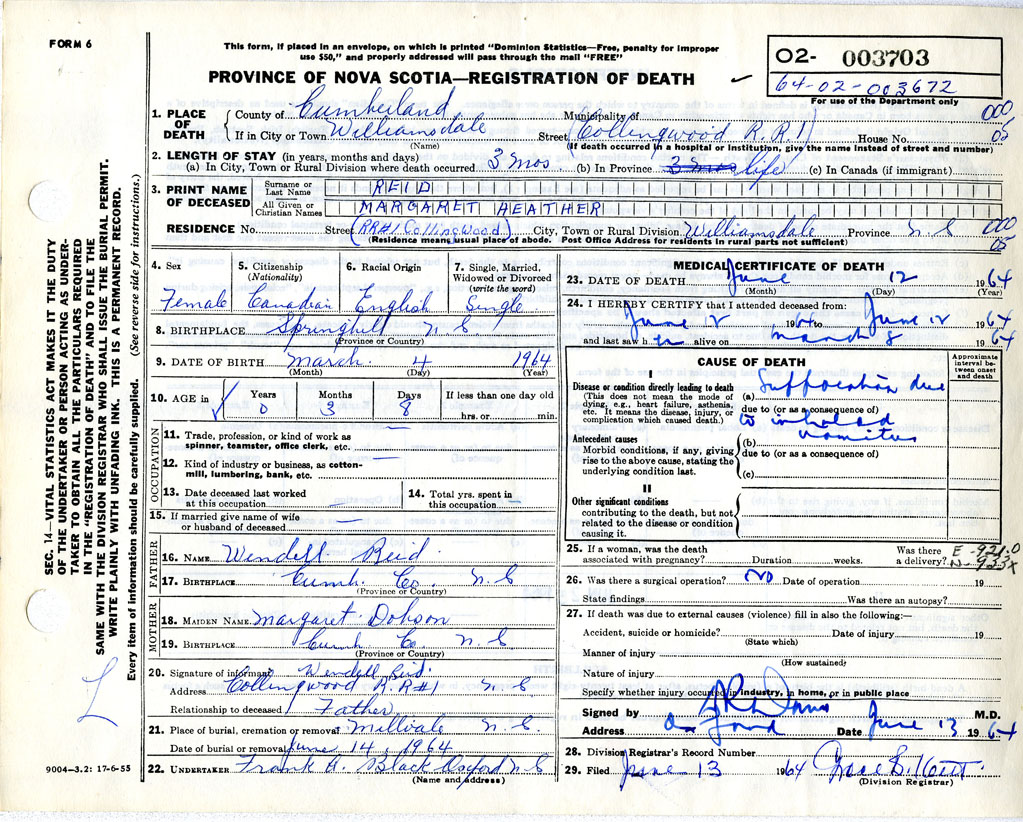 FORM 6
This form, if placed in an envelope, on which is printed "Dominion Statistics—Free, penalty for improper
use $50," and properly addressed will pass through the mail "FREE"
PROVINCE OF NOVA SCOTIA—REGISTRATION OF DEATH
02- 003703
64-02-003672
For use of the Department only
000
05
1. PLACE OF DEATH
County of Cumberland Municipality of
If in City or Town Williamsdale Street (Collingwood R.R 1) House No.
(Name) (If death occurred in a hospital or institution, give the name instead of street and number)
2. LENGTH OF STAY (in years, months and days)
(a) In City, Town or Rural Division where death occurred 3 mos (b) In Province 3 mos life (c) In Canada (if immigrant)
3. PRINT NAME OF DECEASED
Surname or Last Name REID
All Given or Christian Names MARGARET HEATHER
RESIDENCE No. Street (RR#1 Collingwood) City, Town or Rural Division Williamsdale Province N.S
000
05
(Residence means usual place of abode. Post Office Address for residents in rural parts not sufficient)
4. Sex
Female
5. Citizenship
(Nationality)
Canadian
6. Racial Origin
English
7. Single, Married, Widowed or Divorced
(write the word)
Single
8. BIRTHPLACE Springhill N S
(Province or Country)
9. DATE OF BIRTH March 4 1964
(Month) (Day) (Year)
10. AGE in
Years Months Days If less than one day old
0 3 8 hrs. or min.
OCCUPATION
11. Trade, profession, or kind of work as
spinner, teamster, office clerk, etc. —
12. Kind of industry or business, as cotton-
mill, lumbering, bank, etc. —
13. Date deceased last worked
at this occupation —
14. Total yrs. spent in
this occupation —
15. If married give name of wife
or husband of deceased —
FATHER
16. NAME Wendell Reid
17. BIRTHPLACE Cumb. Co. N.S
(Province or Country)
MOTHER
18. MAIDEN NAME Margaret Dobson
19. BIRTHPLACE Cumb Co N.S
(Province or Country)
20. Signature of informant Wendell Reid
Address Collingwood R.R#1 N S
Relationship to deceased Father
21. Place of burial, cremation or removal Millvale N.S
Date of burial or removal June 14, 1964
22. UNDERTAKER Frank A. Black Oxford N S
(Name and address)
MEDICAL CERTIFICATE OF DEATH
23. DATE OF DEATH June 12 1964
(Month) (Day) (Year)
24. I HEREBY CERTIFY that I attended deceased from:
June 12 1964 to June 12 1964
and last saw her alive on March 8 1964
CAUSE OF DEATH
Approximate interval between onset and death
I
Disease or condition directly leading to death
(This does not mean the mode of
dying, e.g., heart failure, asthenia,
etc. It means the disease, injury, or
complication which caused death.)
(a) Suffocation due
due to (or as a consequence of)
to inhaled
vomitus
Antecedent causes
Morbid conditions, if any, giving
rise to the above cause, stating the
underlying condition last.
(b)
due to (or as a consequence of)
(c)
II
Other significant conditions
contributing to the death, but not
related to the disease or condition
causing it.
25. If a woman, was the death
associated with pregnancy? Duration weeks. Was there a delivery?
E-921.0
N-933X
26. Was there a surgical operation? NO Date of operation 19
State findings Was there an autopsy?
27. If death was due to external causes (violence) fill in also the following:—
Accident, suicide or homicide? Date of injury 19
(State which)
Manner of injury
(How sustained)
Nature of injury
Specify whether injury occurred in industry, in home, or in public place
Signed by M.D.
Address Date June 13 1964
28. Division Registrar's Record Number
29. Filed June 13 1964
(Division Registrar)
SEC. 14—VITAL STATISTICS ACT MAKES IT THE DUTY
OF THE UNDERTAKER OR PERSON ACTING AS UNDER-
TAKER TO OBTAIN ALL THE PARTICULARS REQUIRED
IN THE "REGISTRATION OF DEATH" AND TO FILE THE
SAME WITH THE DIVISION REGISTRAR WHO SHALL ISSUE THE BURIAL PERMIT.
WRITE PLAINLY WITH UNFADING INK. THIS IS A PERMANENT RECORD.
Every item of information should be carefully supplied. (See reverse side for instructions.)
9004—3.2: 17-6-55